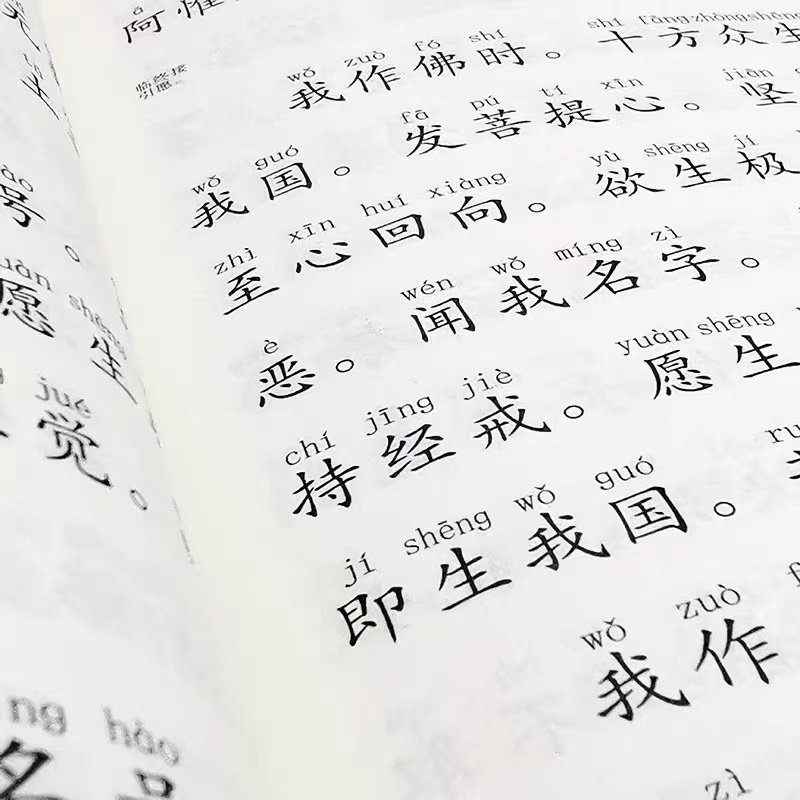 号。
shēng
愿生
jué
觉。
hào
名
阿惟
临终接
引愿
wǒ zuò fó shí shí fāng zhòng shēng
我作佛时。十方众生
wǒ guó fā pú tí xīn jiān
我国。发菩提心。坚
zhì xīn huí xiàng yù shēng jí
至心回向。欲生极
è wén wǒ míng zì
恶。闻我名字。
chí jīng jiè yuàn shēng
持经戒。愿生
jí shēng wǒ guó
即生我国。
wǒ zuò
我作
zì